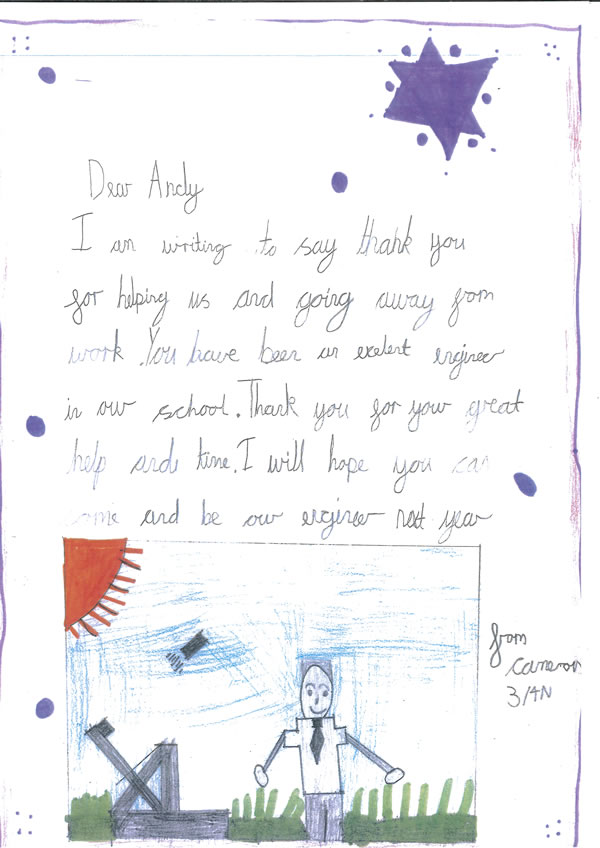 Dear Andy
I am writing to say thank you
for helping us and going away from
work. You have been an exelent engineer
in our school. Thank you for your great
help and time. I will hope you can
come and be our engineer next year
from
Cameron
3/4N